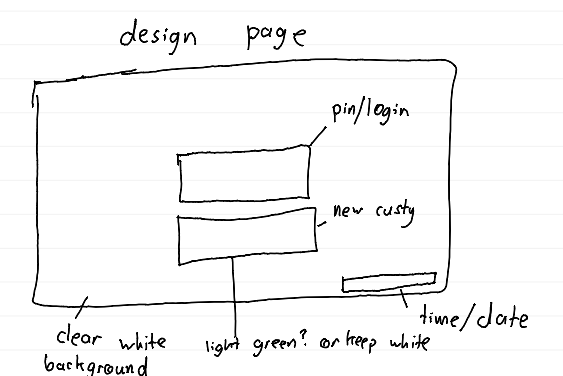 design page
pin/login
new custy
time/date
clear white
background
light green? or keep white